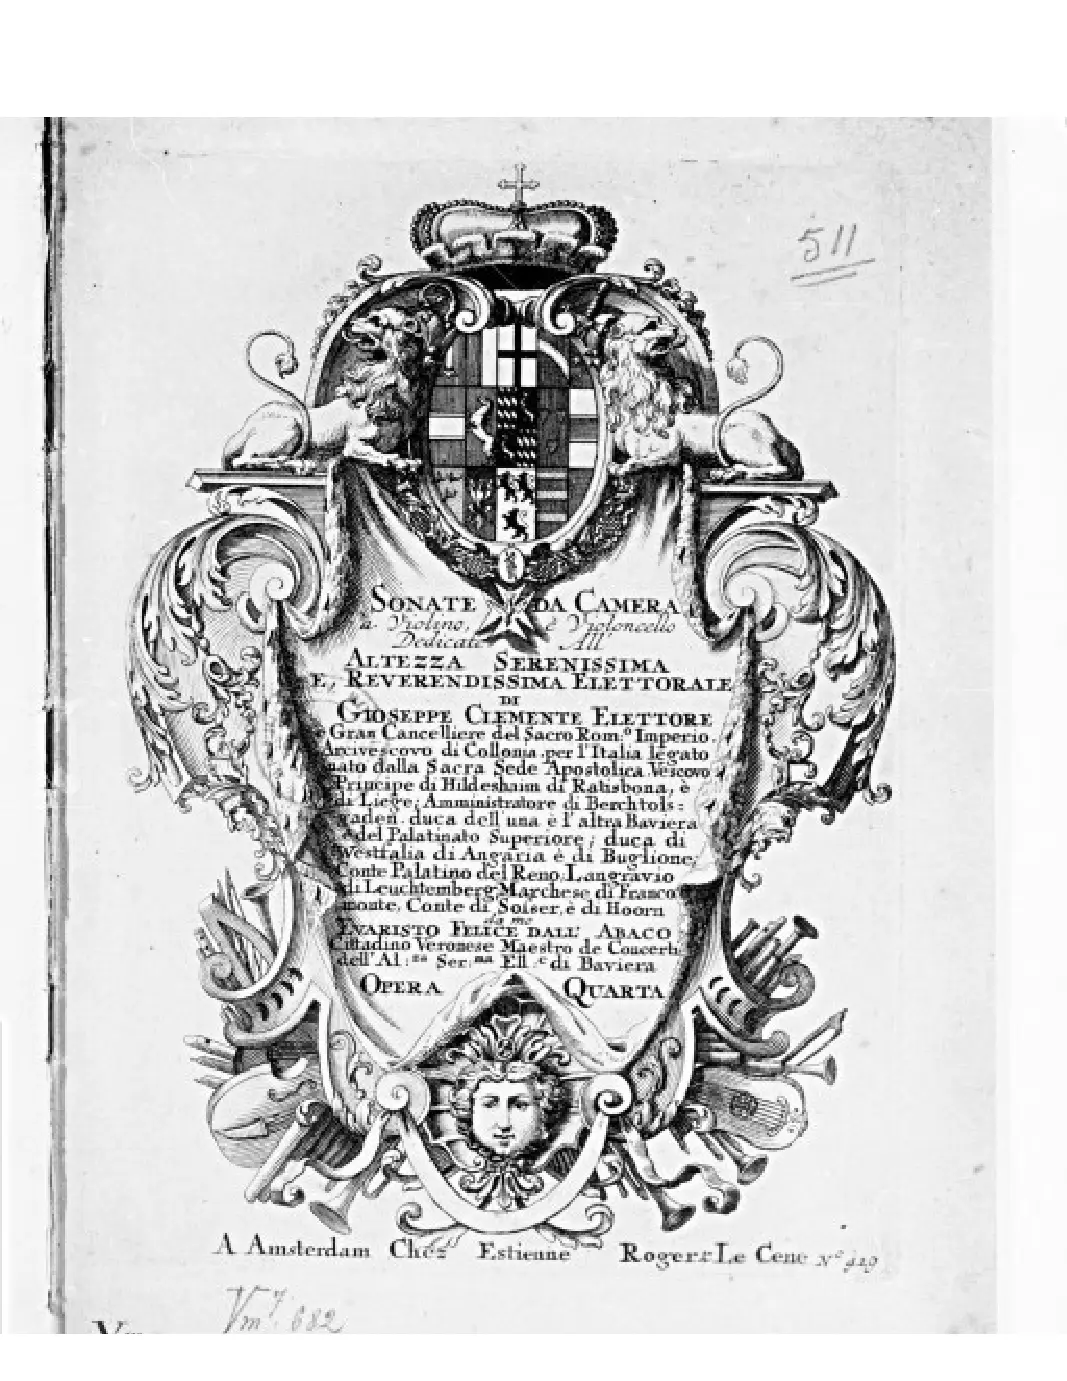 511
SONATE DA CAMERA
à Violino, è Violoncello
Dedicate All
ALTEZZA SERENISSIMA
E, REVERENDISSIMA ELETTORALE
DI
GIOSEPPE CLEMENTE ELETTORE
è Gran Cancelliere del Sacro Rom:º Imperio.
Arcivescovo di Collonia per l'Italia legato
nato dalla Sacra Sede Apostolica Vescovo
Principe di Hildeshaim di Ratisbona, è
di Liege; Amministratore di Berchtols:
gaden. duca dell una è l'altra Baviera
è del Palatinato Superiore; duca di
Westfalia di Angaria è di Buglione;
Conte Palatino del Reno, Langravio
di Leuchtemberg Marchese di Franco
monte, Conte di Soiser, è di Hoorn
da me
EVARISTO FELICE DALL' ABACO
Cittadino Veronese Maestro de Concerti
dell'Al:za Ser:ma Ell:e di Baviera
OPERA QUARTA
A Amsterdam Chez Estienne Roger & Le Cene Nº 429
Vm 7. 682